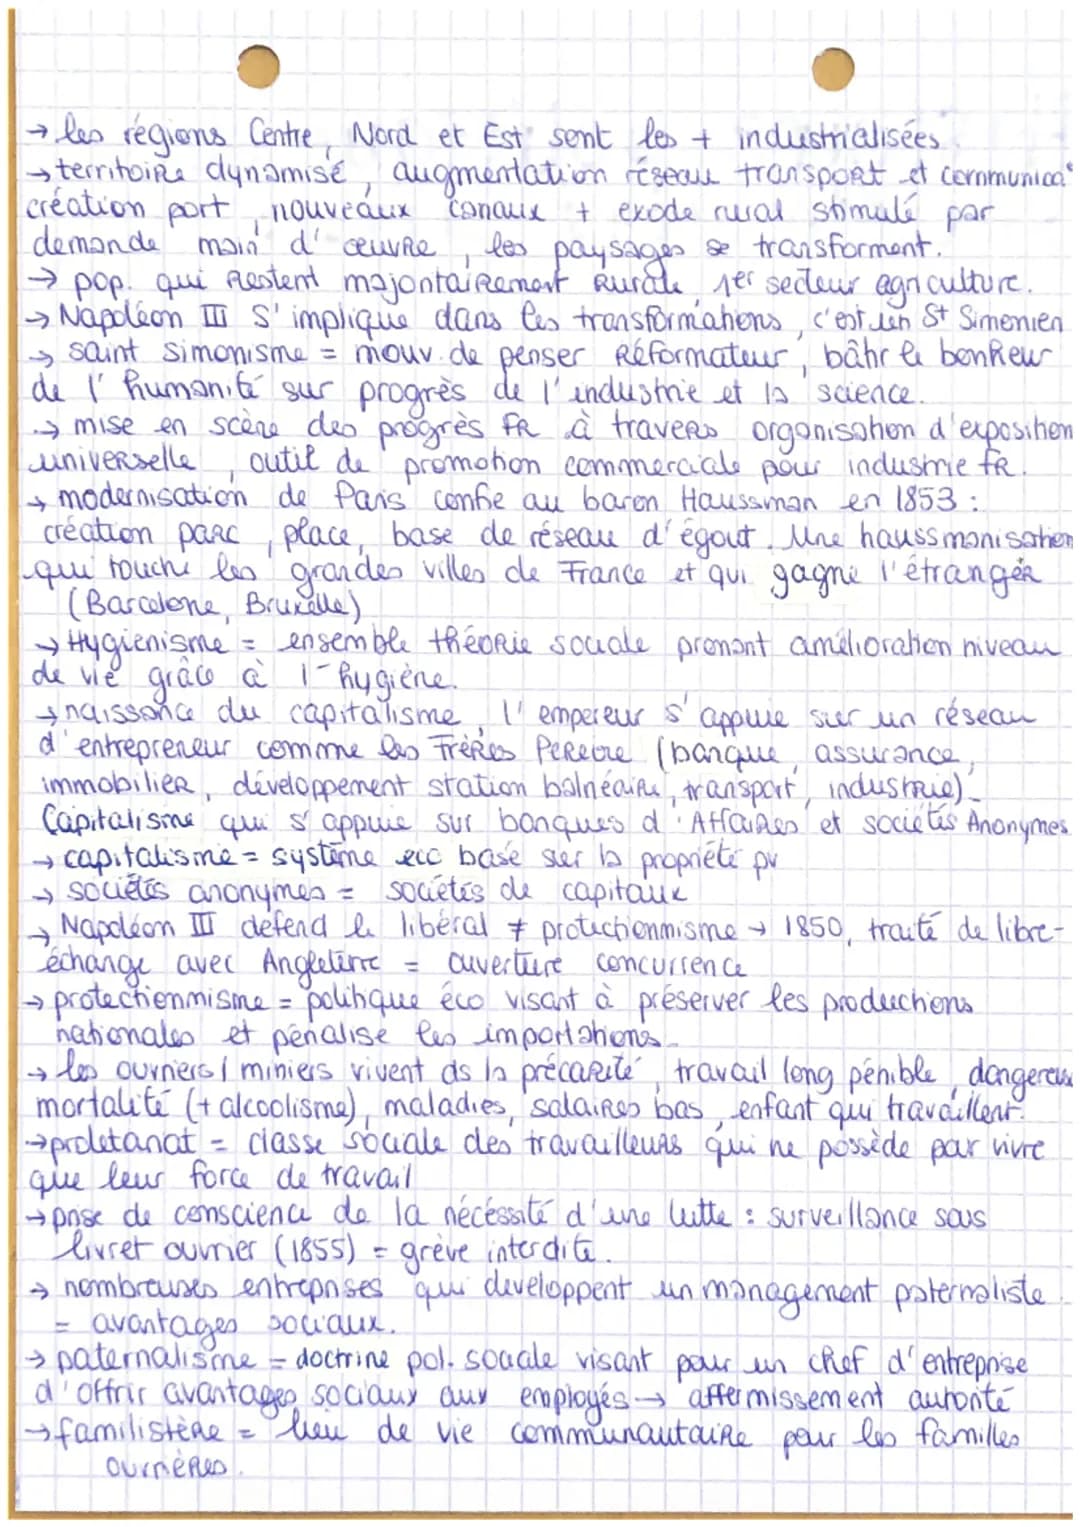 → les régions Centre, Nord et Est sont les + industrialisées.
→ territoire dynamisé, augmentation réseau transport et communica°
création port, nouveaux canaux + exode rural stimulé par
demande main d'œuvre, les paysages se transforment.
→ pop. qui restent majoritairement rurale, 1er secteur agriculture.
→ Napoléon III s'implique dans les transformations, c'est un St Simonien
→ saint simonisme = mouv. de penser réformateur, bâtir le bonheur
de l'humanité sur progrès de l'industrie et la science.
→ mise en scène des progrès FR à travers organisation d'exposition
universelle, outil de promotion commerciale pour industrie FR.
→ modernisation de Paris confie au baron Haussman en 1853 :
création parc, place, base de réseau d'égout. Une haussmanisation
qui touche les grandes villes de France et qui gagne l'étranger
(Barcelone, Bruxelle)
→ Hygiénisme = ensemble théorie sociale pronant amélioration niveau
de vie grâce à l'hygiène.
→ naissance du capitalisme, l'empereur s'appuie sur un réseau
d'entrepreneur comme les Frères Pereire (banque, assurance,
immobilier, développement station balnéaire, transport, industrie).
Capitalisme qui s'appuie sur banques d'Affaires et sociétés Anonymes
→ capitalisme = système eco basé sur la propriété pv
→ sociétés anonymes = sociétés de capitaux
→ Napoléon III défend le libéral ≠ protectionnisme → 1850, traité de libre-
échange avec Angleterre = ouverture concurrence
→ protectionnisme = politique éco visant à préserver les productions
nationales et pénalise les importations.
→ les ouvriers / miniers vivent ds la précarité, travail long, pénible, dangereux
mortalité (+ alcoolisme), maladies, salaires bas, enfant qui travaillent.
→ prolétariat = classe sociale des travailleurs qui ne possède par vivre
que leur force de travail
→ prise de conscience de la nécéssité d'une lutte : surveillance sous
livret ouvrier (1855) = grève interdite.
→ nombreuses entreprises qui développent un management paternaliste.
= avantages sociaux.
→ paternalisme = doctrine pol. sociale visant pour un chef d'entreprise
d'offrir avantages sociaux aux employés → affermissement autorité
→ familistère = lieu de vie communautaire pour les familles
ouvrières.